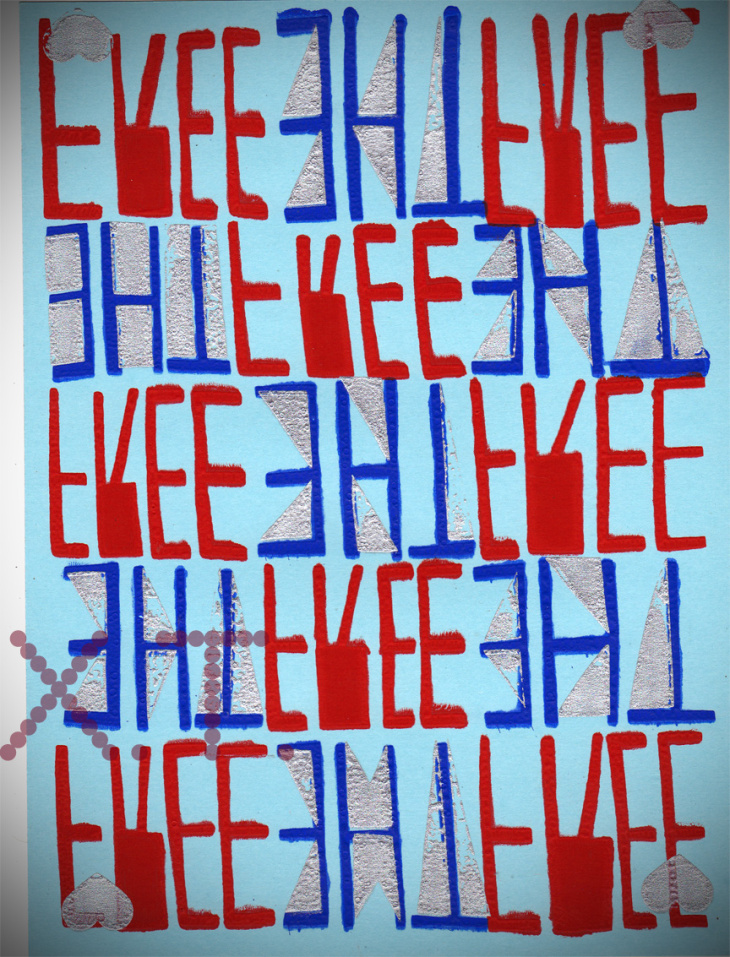 FREE THE FREE
THE FREE THE
FREE THE FREE
THE FREE THE
X.T.
FREE THE FREE